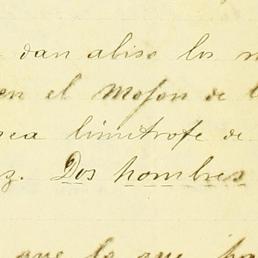 dan aliso los
en el Mojon de
nea limitrofe de
z. Dos hombres
que lo que